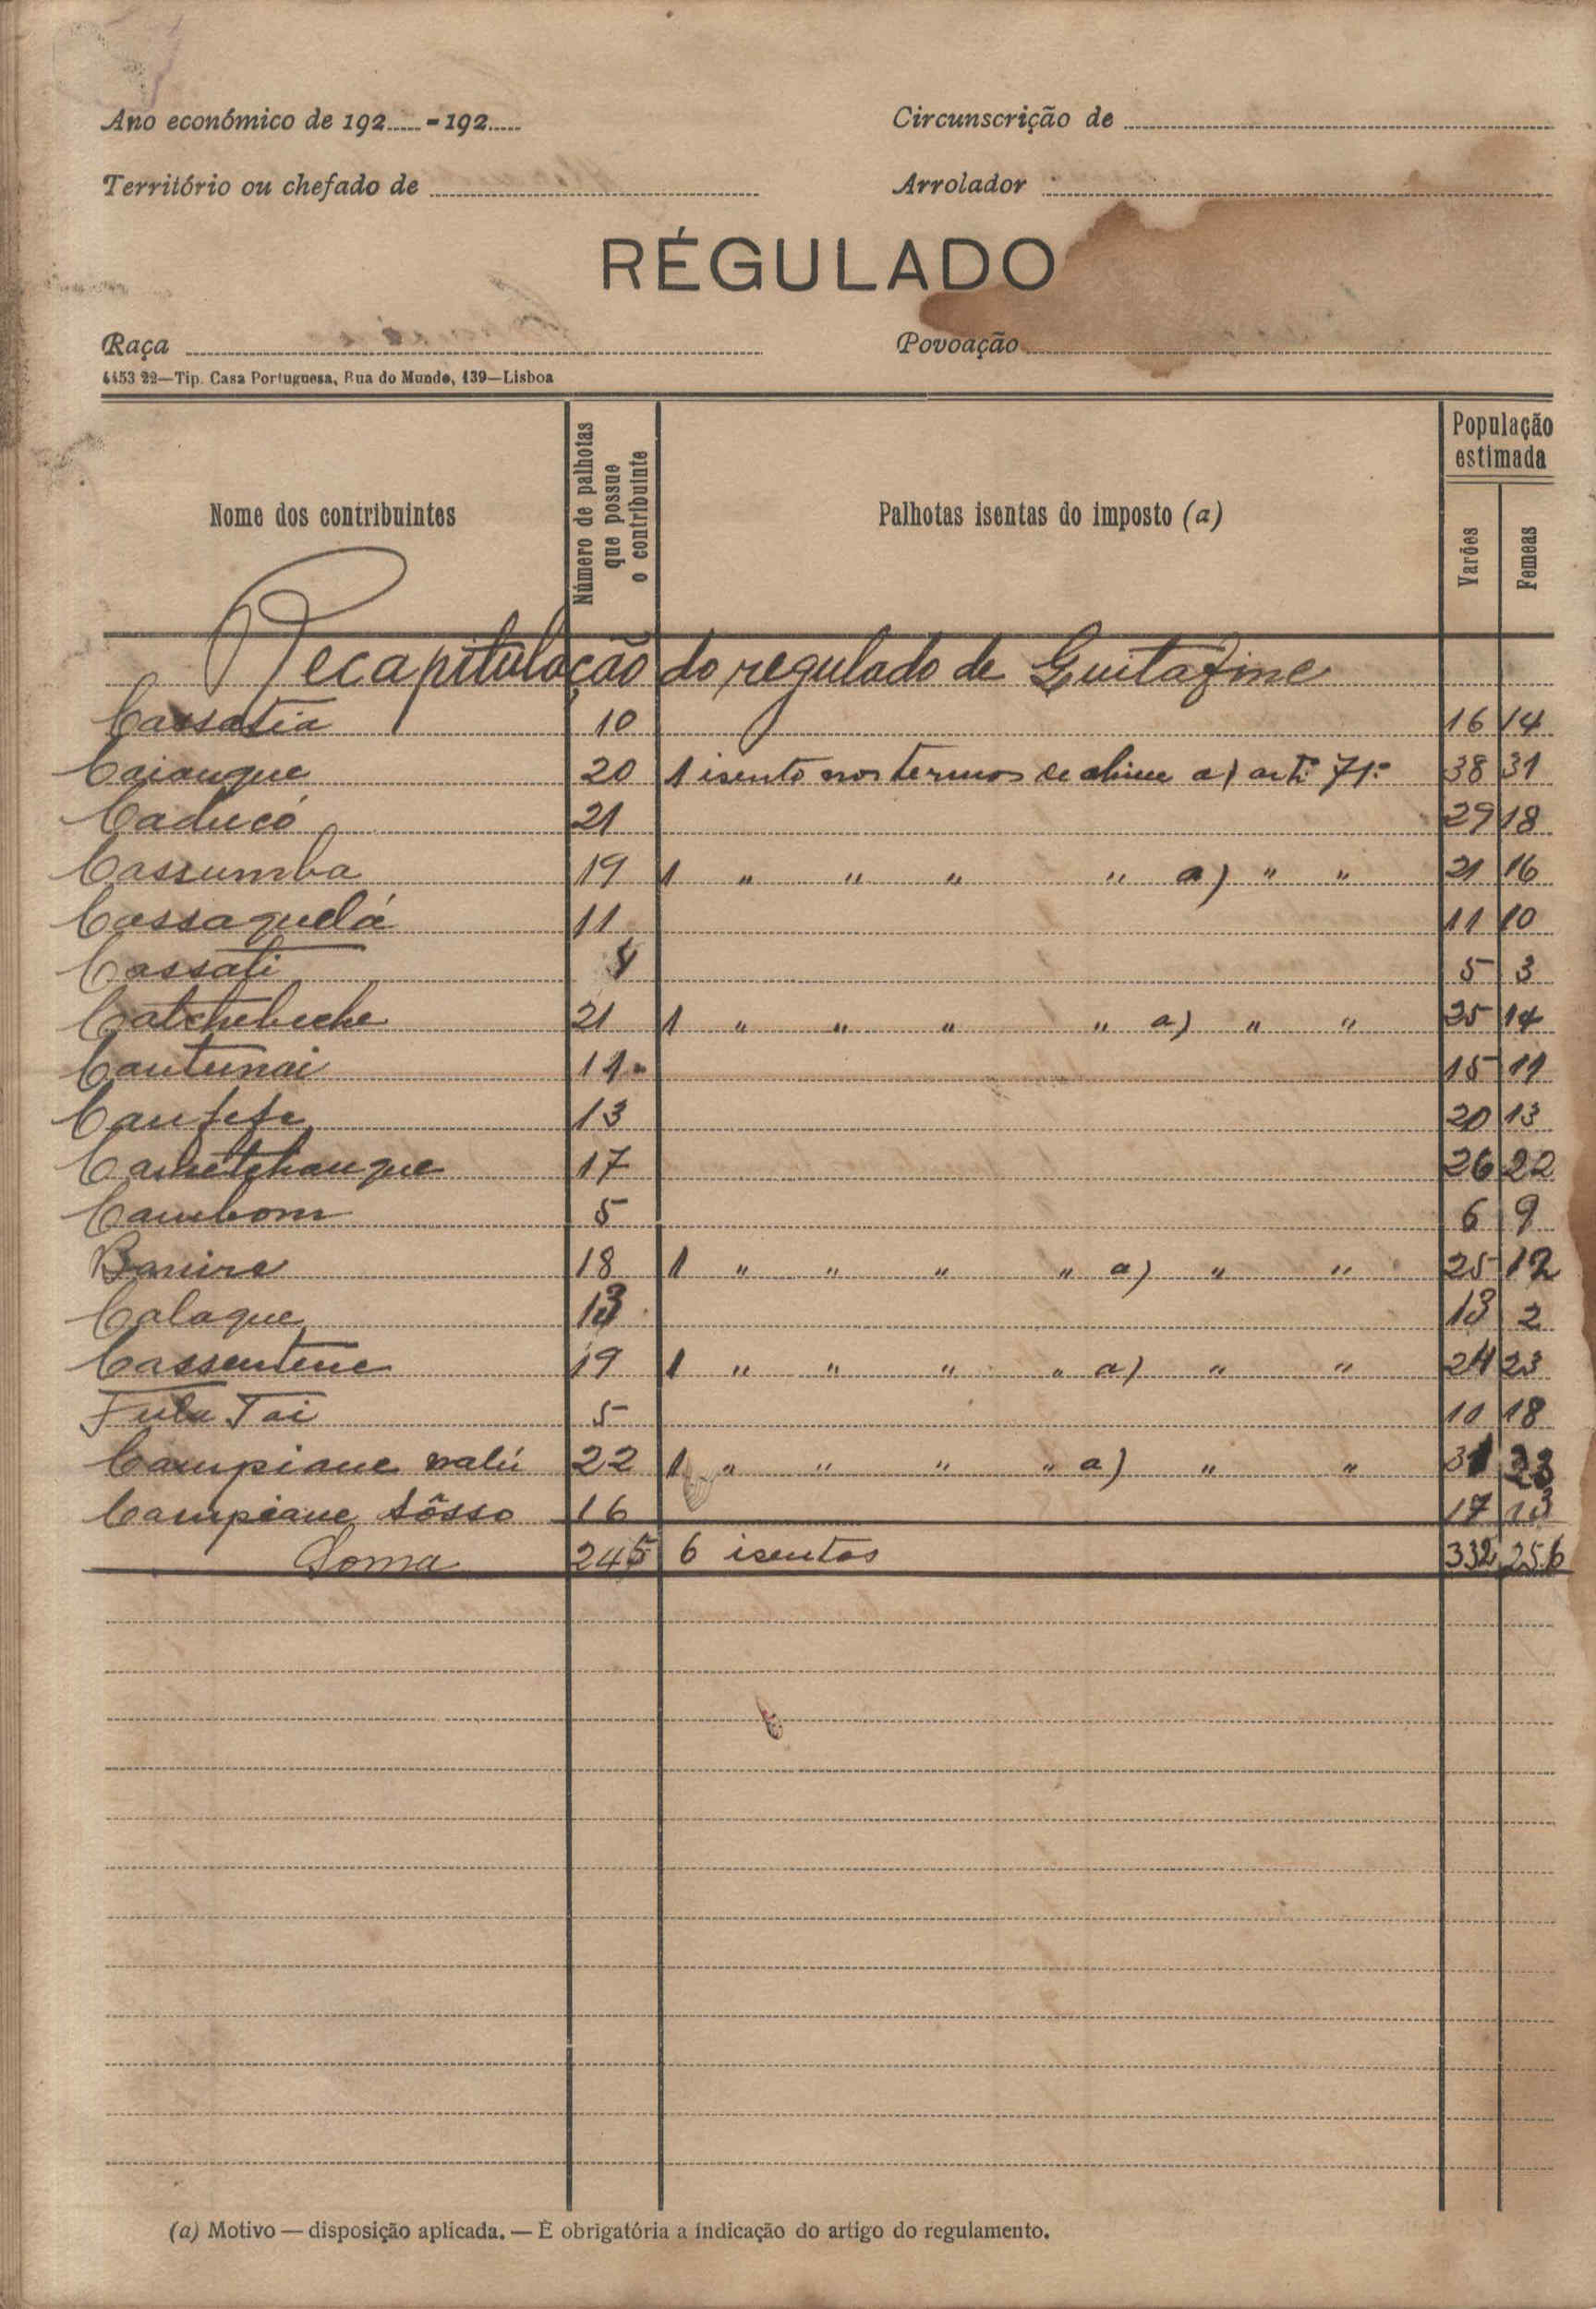 Ano económico de 192..... - 192.....
Circunscrição de
Território ou chefado de
Arrolador
RÉGULADO
Raça
Povoação
4453 22—Tip. Casa Portuguesa, Rua do Mundo, 139—Lisboa
Nome dos contribuintes
Número de palhotas que possue o contribuinte
Palhotas isentas do imposto (a)
População estimada
Varões
Femeas
Recapitulação do regulado de Guitafine
Cassatia 10 16 14
Caiauque 20 1 isento nos termos a) artº 71º 38 31
Caducó 21 29 18
Cassumba 19 1 " " " " a) " " 21 16
Cassaquelá 11 11 10
Cassati 4 5 3
Catchebeche 21 1 " " " " a) " " 25 14
Cautunai 11 15 11
Caufefe 13 20 13
17 26 22
Caubom 5 6 9
Banire 18 1 " " " " a) " " 25 12
Calaque 13 13 2
Cassentene 19 1 " " " " a) " " 24 23
Fula Tai 5 10 18
Campiane nalú 22 1 " " " " a) " " 31 23
Campiane Sôsso 16 17 13
Soma 245 6 isentos 332 256
(a) Motivo — disposição aplicada. — É obrigatória a indicação do artigo do regulamento.